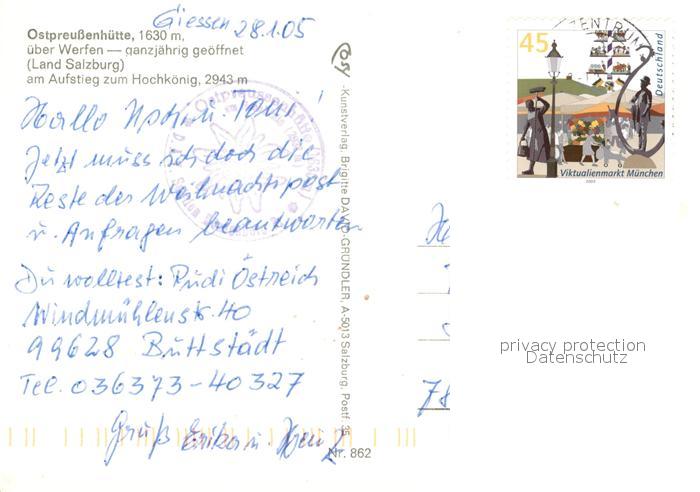 Giessen 28.1.05
Ostpreußenhütte, 1630 m,
über Werfen — ganzjährig geöffnet
(Land Salzburg)
am Aufstieg zum Hochkönig, 2943 m
Hallo Toni!
Jetzt muss ich doch die
Reste der Weihnachtspost
u. Anfragen beantworten
Du wolltest: Rudi Östreich
Windmühlenstr. 40
99628 Buttstädt
Tel. 036373-40327
Gruß Erika u.
Cosy
-Kunstverlag, Brigitte DAVID-GRÜNDLER, A-5013 Salzburg, Postf. 35
Nr. 862
ZENTRUM
45
Deutschland
Viktualienmarkt München
2003
privacy protection
Datenschutz